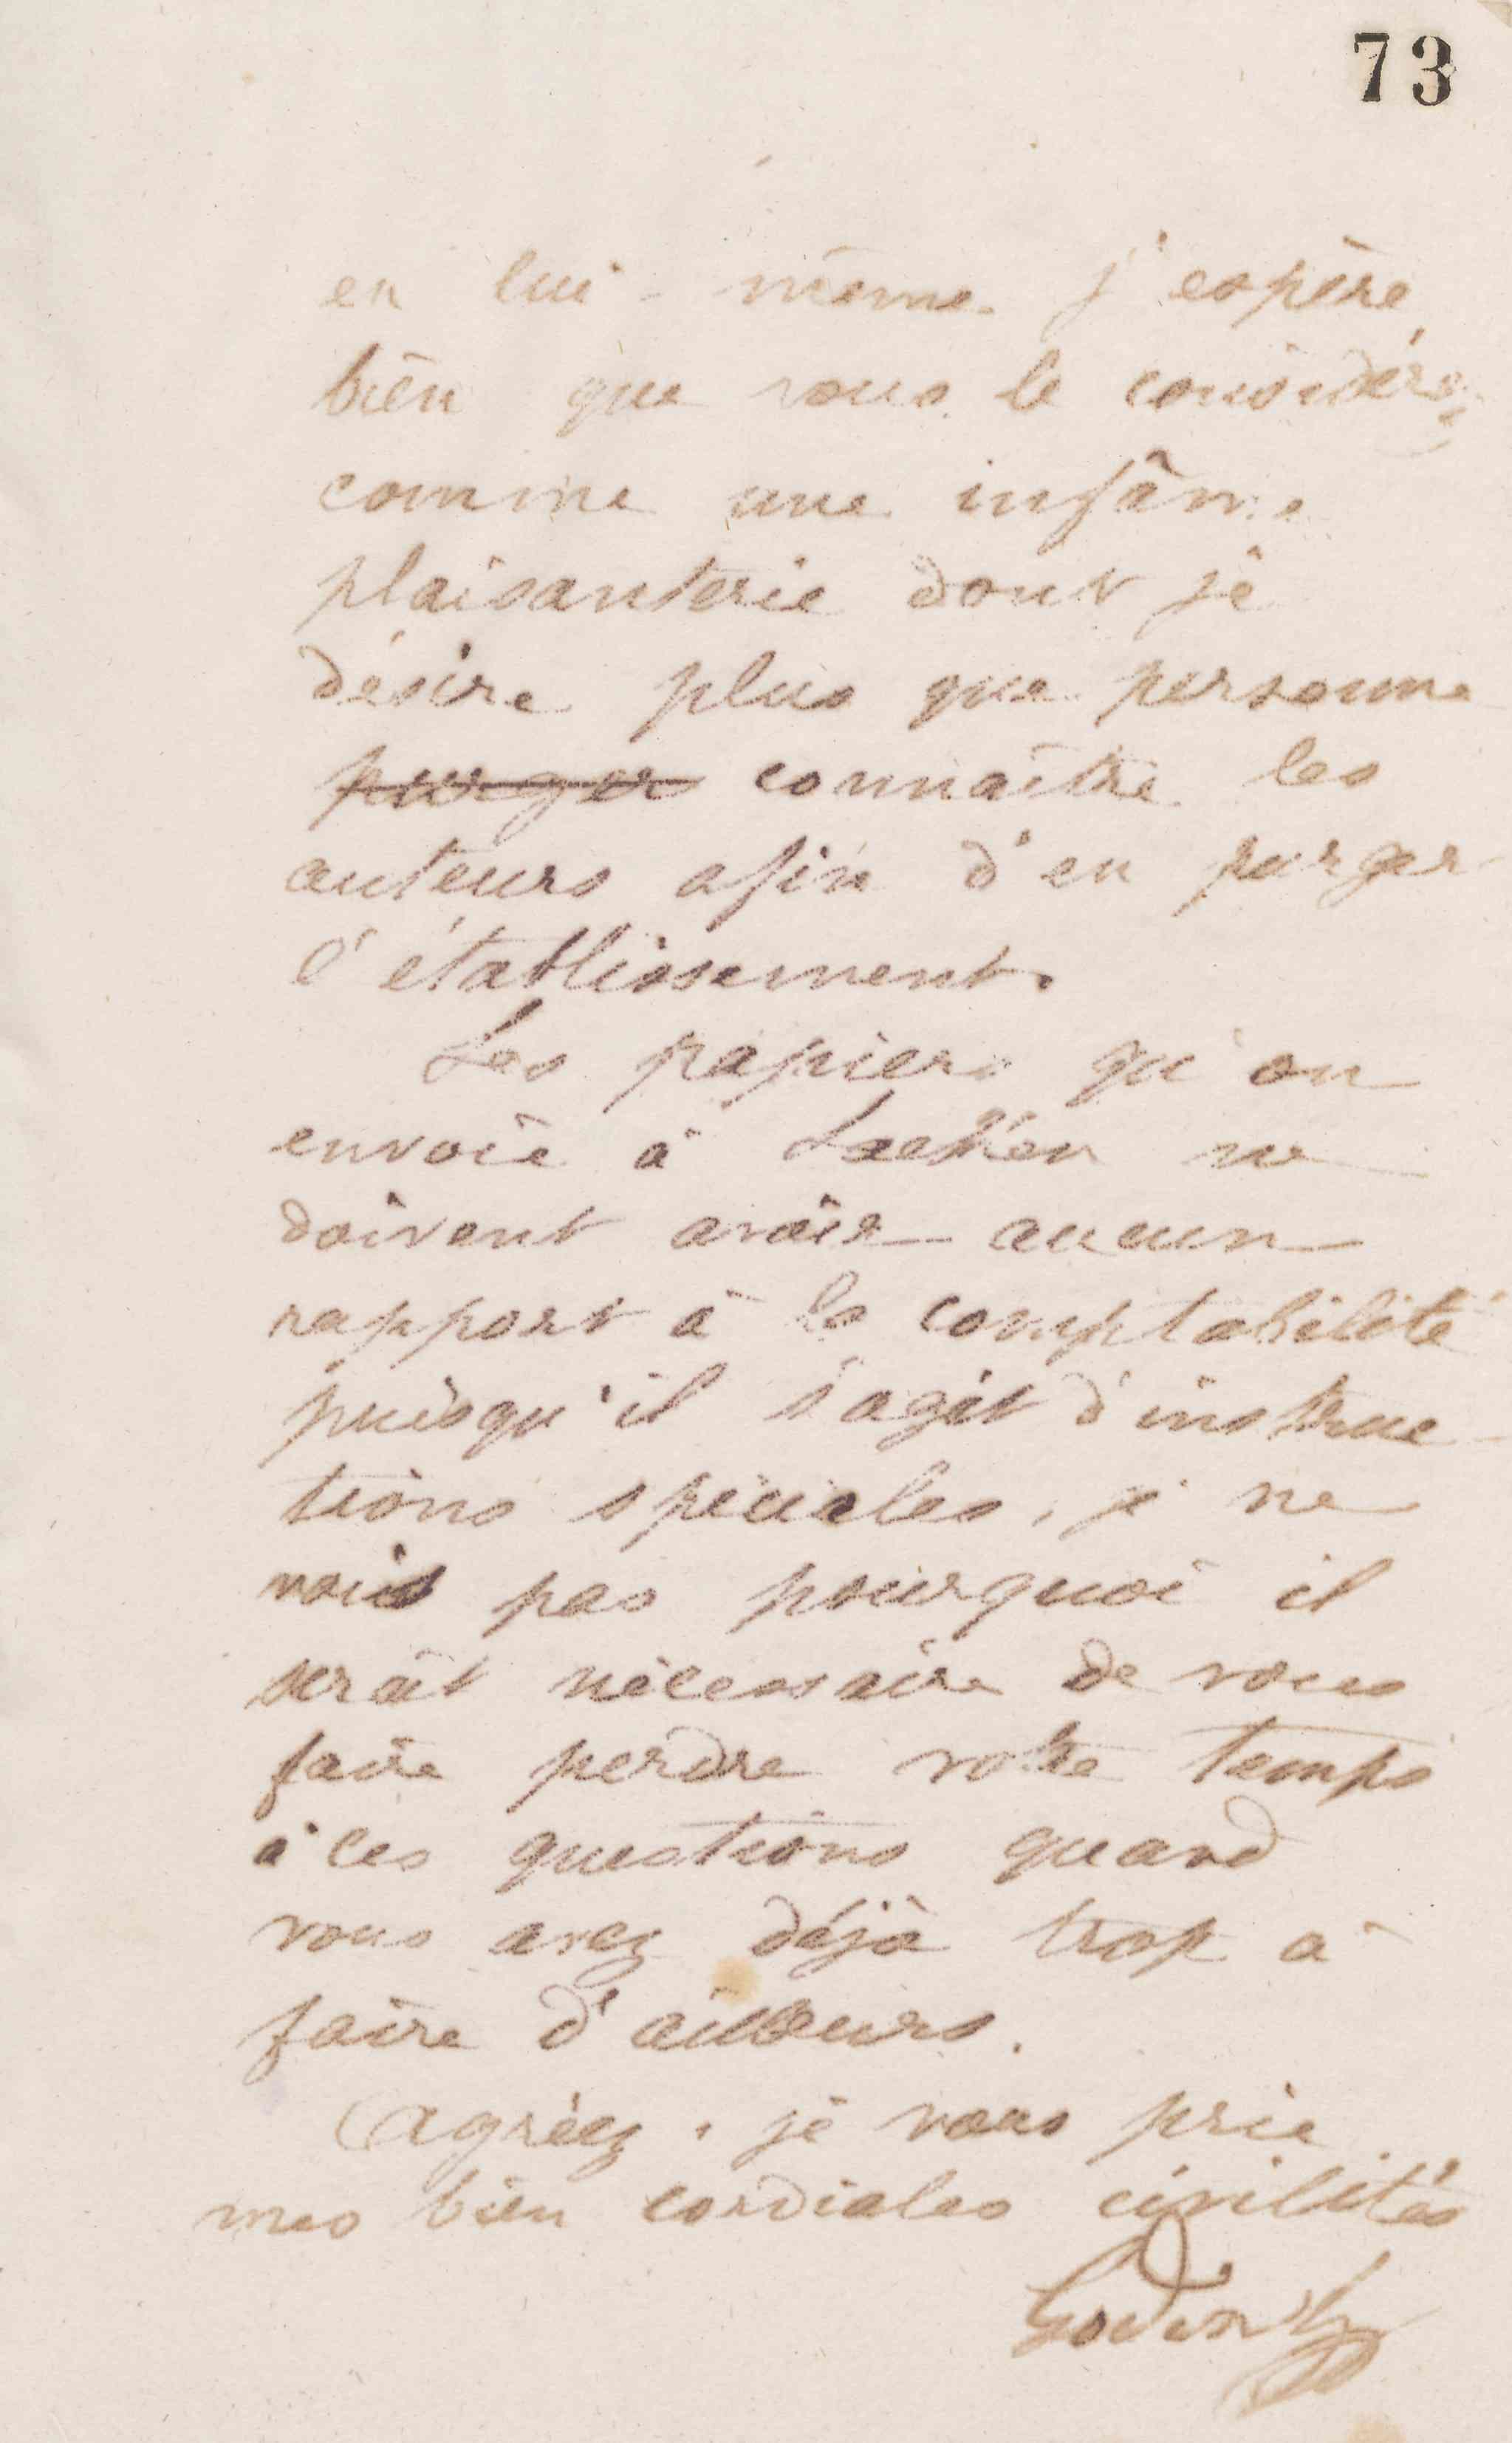 73
en lui-même. j'espère
bien que vous le considérez
comme une infâme
plaisanterie dont je
désire plus que personne
purger connaître les
auteurs afin d'en purger
l'établissement.
Les papiers qu'on
envoie à Laeken ne
doivent avoir aucun
rapport à la comptabilité
puisqu'il s'agit d'instruc-
tions spéciales, je ne
vois pas pourquoi il
serait nécessaire de vous
faire perdre votre temps
à ces questions quand
vous avez déjà trop à
faire d'ailleurs.
Agréez, je vous prie
mes bien cordiales civilités
Godin